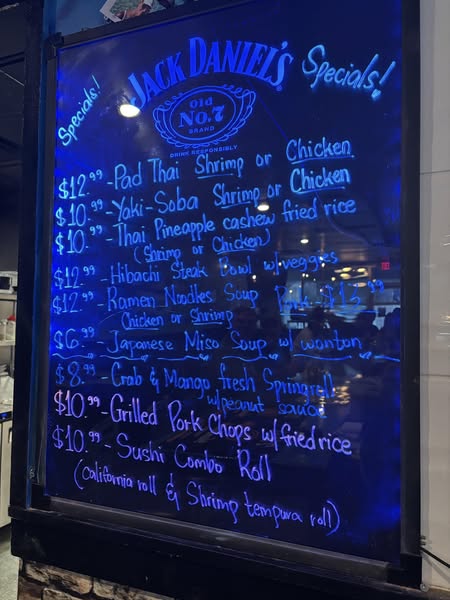 JACK DANIEL'S
Old
No.7
BRAND
DRINK RESPONSIBLY
Specials!
Specials!
$12.99-Pad Thai Shrimp or Chicken
$10.99-Yaki-Soba Shrimp or Chicken
$10.99-Thai Pineapple cashew fried rice
(Shrimp or Chicken)
$12.99-Hibachi Steak Bowl w/veggies
$12.99-Ramen Noodles Soup Pork-$13.99
Chicken or Shrimp
$6.99-Japanese Miso Soup w/ wonton
$8.99 Crab & Mango fresh Springroll
w/peanut sauce
$10.99-Grilled Pork Chops w/friedrice
$10.99-Sushi Combo Roll
(California roll & Shrimp tempura roll)